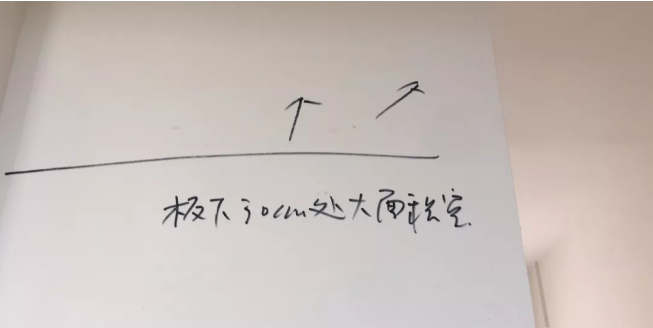 板下30cm处大面积空